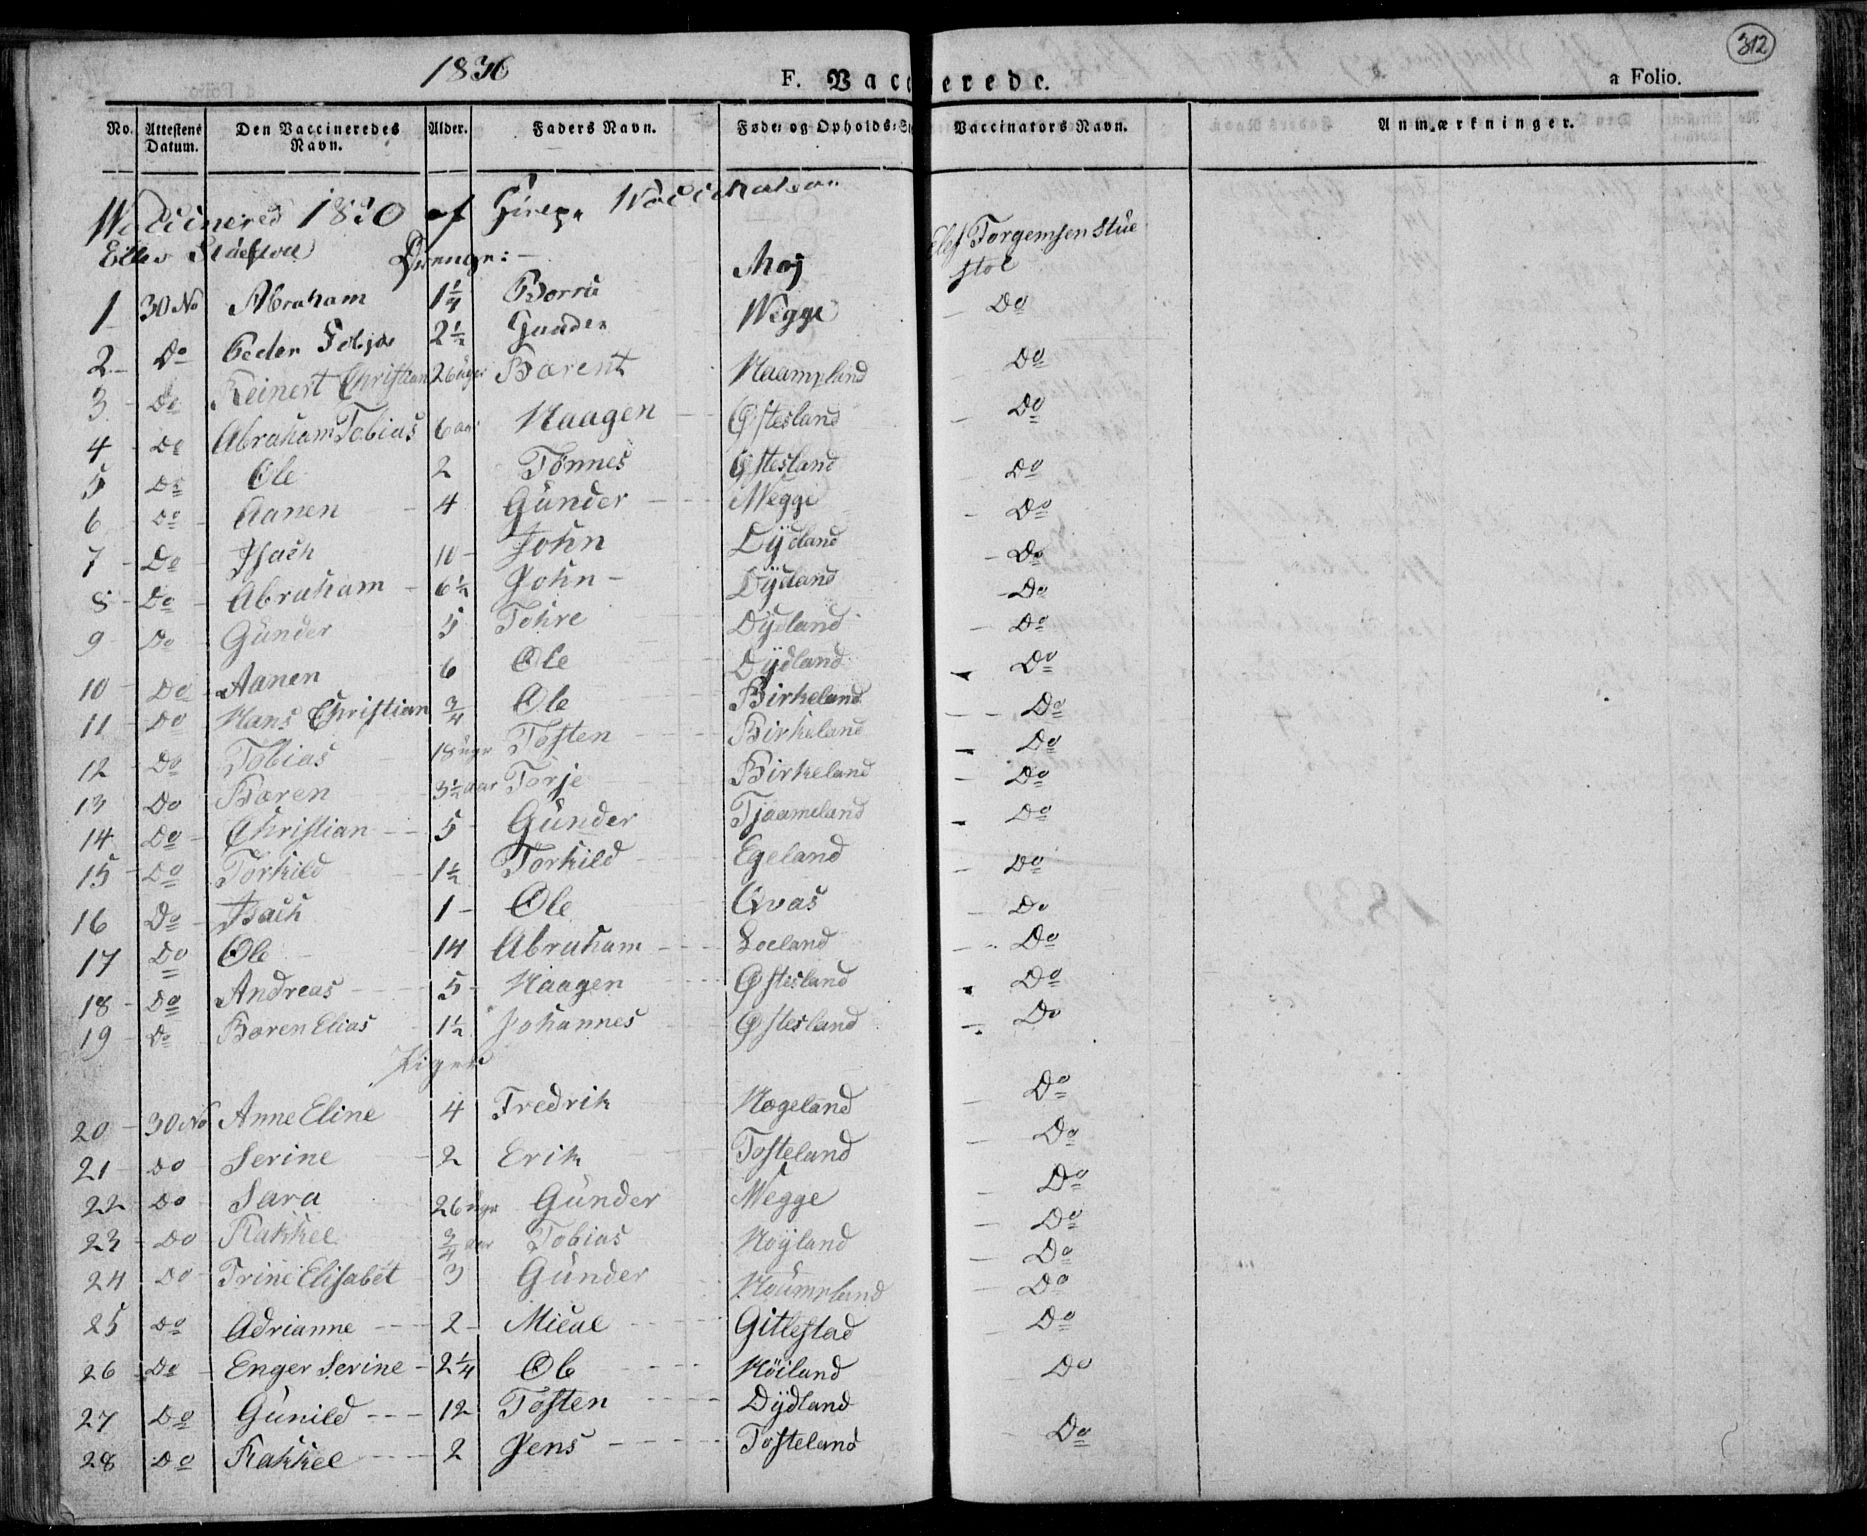 312
1830
F. Vaccinerede.
a Folio.
No. Attestens Datum. Den Vaccineredes Navn. Alder. Faders Navn. Føde- og Opholds-St Vaccinators Navn. Anmærkninger.
1830 af
Elef Torgemsen Stüe
stol
Drenge: —
1 30 No Abraham 1¼ Børre Moj Do
2 Do Peder Tobias 2½ Gunder Wegge Do
3 Do Reinert Christian 26 üger Barent Haampland Do
4 Do Abraham Tobias 6 aar Haagen Østesland
5 Do Ole 2 Tønnes Østesland Do
6 Do Aanen 4 Günder Wegge Do
7 Do Isach 10 John Dÿdland Do
8 Do Abraham 6½ John Dÿdland Do
9 Do Günder 5 Tohre Dÿdland Do
10 Do Aanen 6 Ole Dÿdland Do
11 Do Hans Christian ¾ Ole Birkeland Do
12 Do Tobias 18 ügr Tosten Birkeland Do
13 Do Baren 3½ aar Torje Birkeland Do
14 Do Christian 5 Günder Tjaameland Do
15 Do Torkild 1½ Torkild Egeland Do
16 Do Isach 1 Ole Qvas Do
17 Do Ole 14 Abraham Loeland Do
18 Do Andreas 5 Haagen Østesland Do
19 Do Baren Elias 1½ Johannes Østesland Do
Piger
20 30 No Anne Eline 4 Fredrik Hogeland Do
21 Do Serine 2 Erik Tosteland Do
22 Do Sara 26 ügr Günder Wegge Do
23 Do Rakkel ¾ aar Tobias Høÿland Do
24 Do Trine Elisabet 3 Günder Do
25 Do Adrianne 2 Mical Gitlestad Do
26 Do Enger Serine 2¼ Ole Høiland Do
27 Do Günild 12 Tosten Dÿdland Do
28 Do Rakkel 2 Jens Tosteland Do